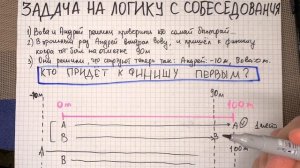 ЗАДАЧА НА ЛОГИКУ С СОБЕСЕДОВАНИЯ
1) Вова и Андрей решили проверить кто самый быстрый...
2) В прошлый раз Андрей выиграл Вову, и пришёл к финишу
когда тот был на отметке 90м
3) Они решили, что стартуют теперь так: Андрей: -10м Вова: 0м.
КТО ПРИДЕТ К ФИНИШУ ПЕРВЫМ?
-10м 90м
0м 100м
A A 1 место
B B
A 100м
B